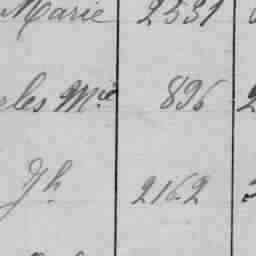 Marie 2331
eles Mie 896
Jh 2162